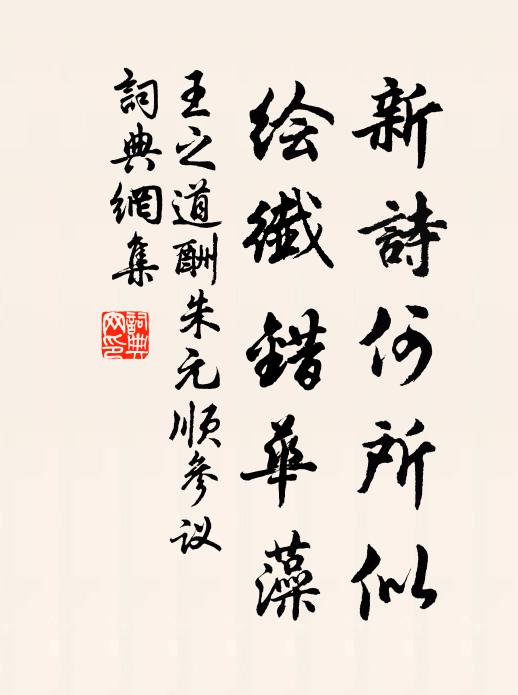 新詩何所似
绘纎錯華藻
王之道酬朱元順參议
詞典網集
詞典网印